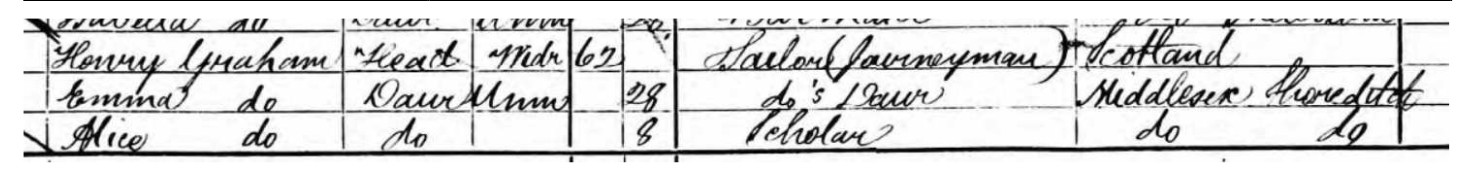 Isabella do Daur Unm 28
Henry Graham Head Widr 62 Tailor (Journeyman) Scotland
Emma do Daur Unm 28 do's Daur Middlesex Shoreditch
Alice do do 8 Scholar do do